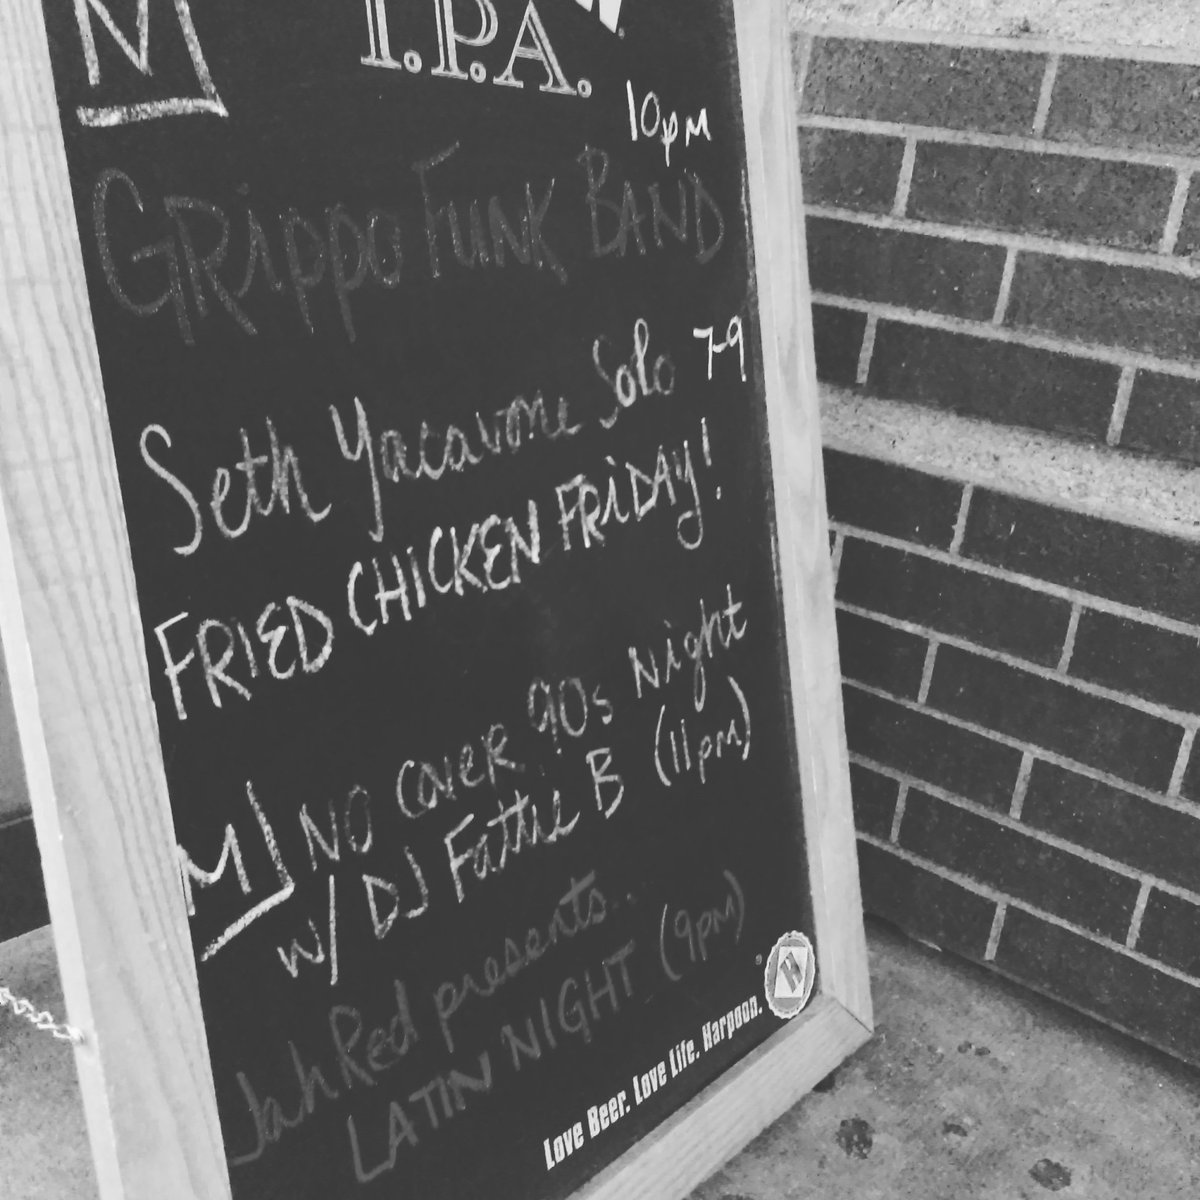 I.P.A.
M
10pm
GRippo FUNK BAND
Seth Yacavone Solo 7-9
FRIED CHICKEN FRiDAY!
M NO cover 90s Night
w/ DJ Fattie B (11pm)
Jah Red presents..
LATIN NIGHT (9pm)
H
Love Beer. Love Life. Harpoon.